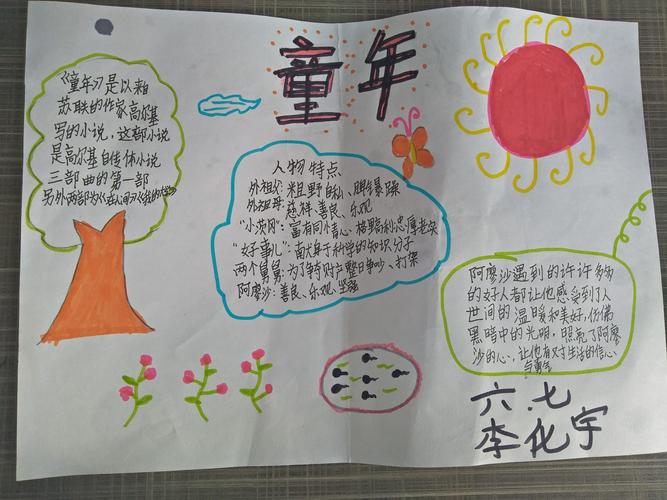 童年
《童年》是以来自
苏联的作家高尔基
写的小说，这部小说
是高尔基自传体小说
三部曲的第一部
另外两部为《在人间》《我的大学》
人物特点
外祖父：粗野自私、脾气暴躁
外祖母：慈祥善良、乐观
"小茨冈"：富有同情心、
"好事儿"：献身于科学的知识分子
两个舅舅：为了争夺财产整日争吵、打架
阿廖沙：善良、乐观、坚强
阿廖沙遇到的许许多多
的好人都让他感受到了人
世间的温暖和美好，仿佛
黑暗中的光明，照亮了阿廖
沙的心，让他有对生活的信心、
与勇气
六.七
李化宇